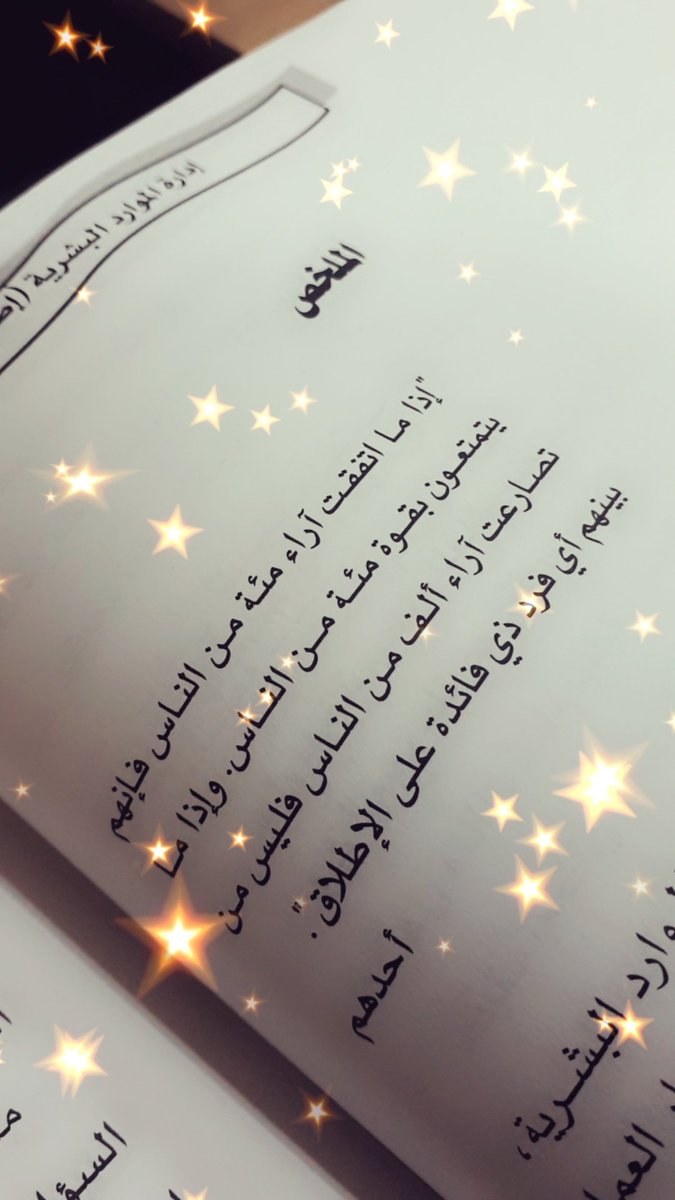 إدارة الموارد البشرية
الملخص
"إذا ما اتفقت آراء مئة من الناس فإنهم
يتمتعون بقوة مئة من الناس. وإذا ما
تصارعت آراء ألف من الناس فليس من
بينهم أي فرد ذي فائدة على الإطلاق".
أحدهم
البشرية،